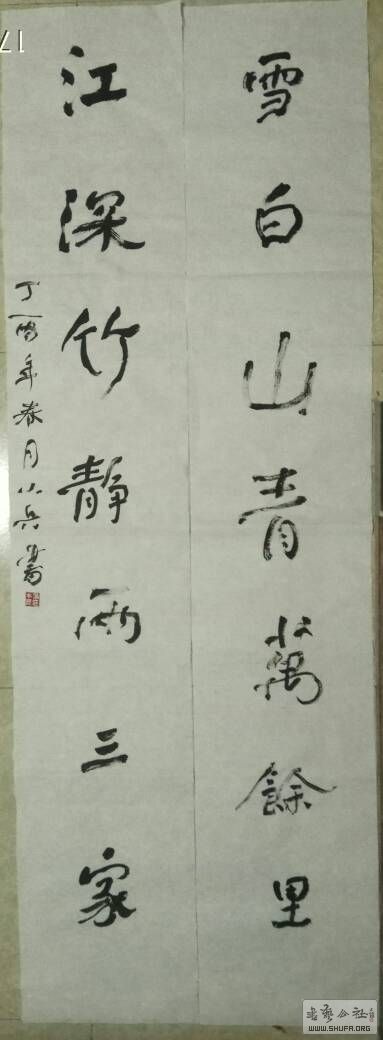 雪白山青萬餘里
江深竹靜兩三家
丁酉年春月小兵書
17
書藝公社
WWW.SHUFA.ORG